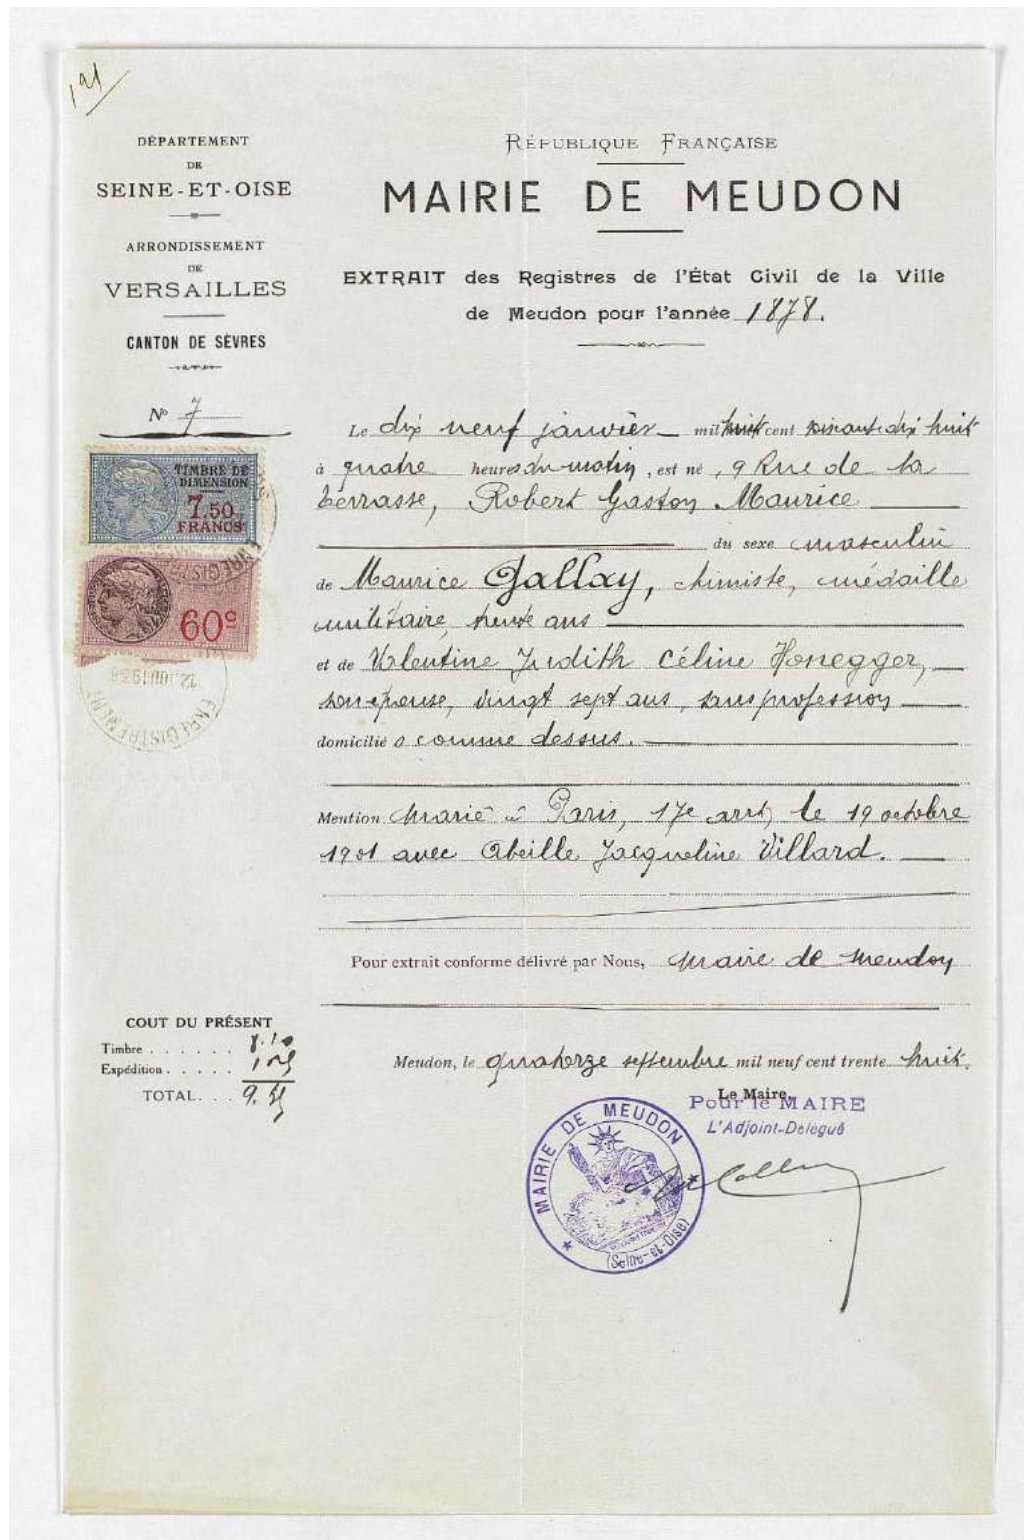 191
DÉPARTEMENT
DE
SEINE-ET-OISE
ARRONDISSEMENT
DE
VERSAILLES
CANTON DE SÈVRES
No 7
TIMBRE DE
DIMENSION
7.50
FRANCS
60c
12 AOUT 1938
ENREGISTREMENT
RÉPUBLIQUE FRANÇAISE
MAIRIE DE MEUDON
EXTRAIT des Registres de l'État Civil de la Ville
de Meudon pour l'année 1878.
Le dix neuf janvier mil huit cent soixante dix huit
à quatre heures du matin, est né, 9 Rue de la
terrasse, Robert Gaston Maurice
du sexe masculin
de Maurice Gallay, chimiste, médaille
militaire, trente ans
et de Valentine Judith Céline Honegger,
son épouse, vingt sept ans, sans profession
domiciliés comme dessus.
Mention Marié à Paris, 17e arrt, le 19 octobre
1901 avec Abeille Jacqueline Villard.
Pour extrait conforme délivré par Nous, Maire de Meudon
COUT DU PRÉSENT
Timbre . . . . . . 8.10
Expédition . . . . .
TOTAL. . .
Meudon, le quatorze septembre mil neuf cent trente huit.
Le Maire,
Pour le MAIRE
L'Adjoint-Délégué
MAIRIE DE MEUDON
(Seine-et-Oise)